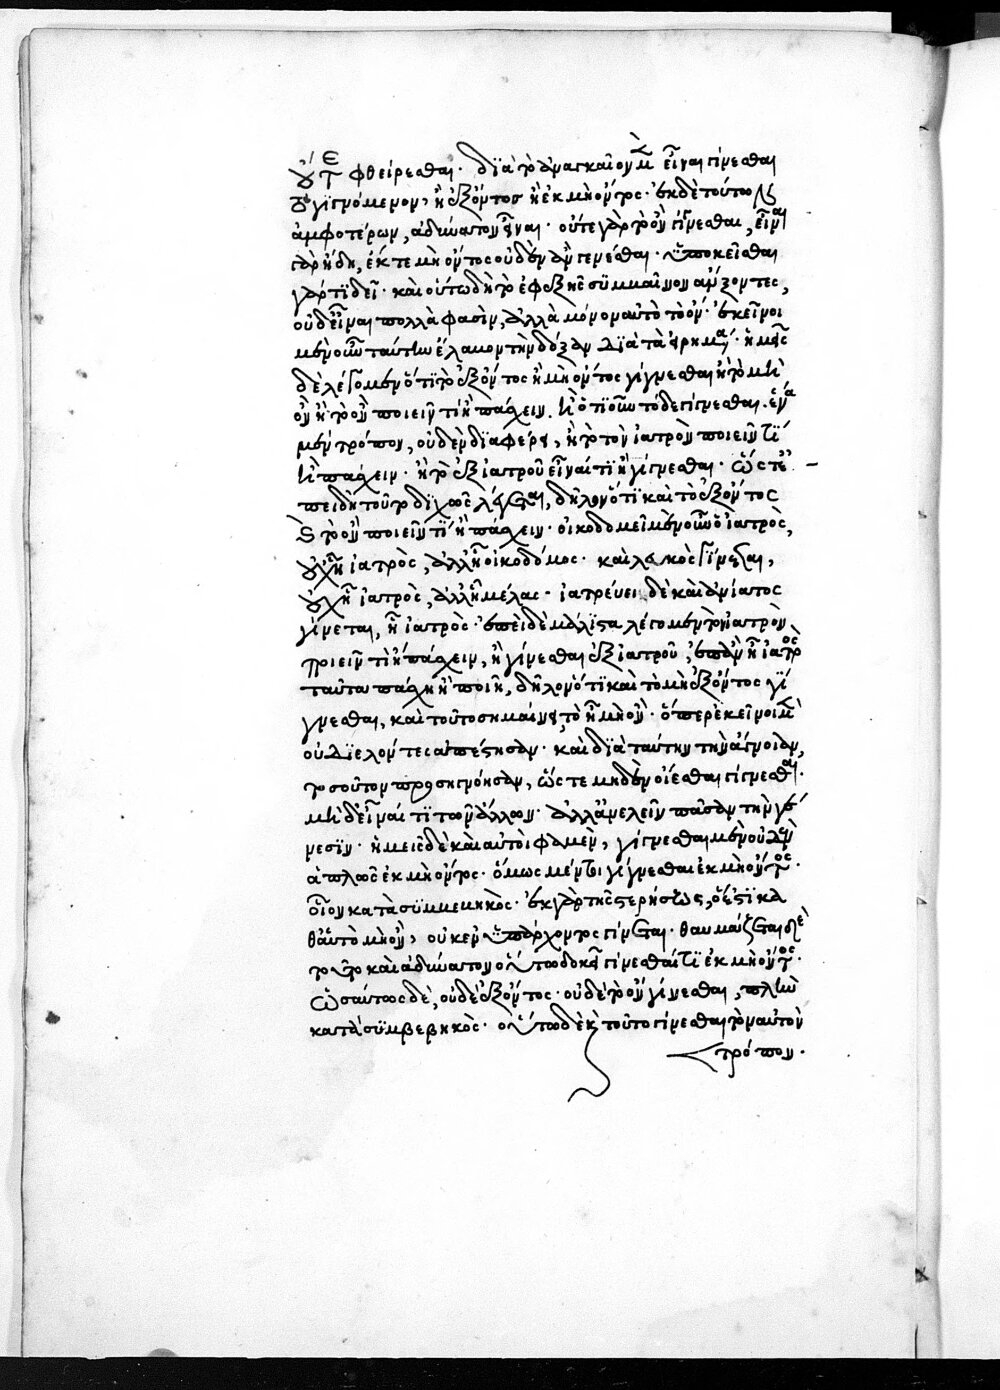 οὔτε φθείρεσθαι· διὰ τὸ ἀναγκαῖον μὲν εἶναι γίνεσθαι
τὸ γιγνόμενον, ἢ ἐξ ὄντος ἢ ἐκ μὴ ὄντος· ἐκ δὲ τούτων
ἀμφοτέρων, ἀδύνατον εἶναι· οὔτε γὰρ τὸ ὂν γίνεσθαι, εἶναι
γὰρ ἤδη, ἔκ τε μὴ ὄντος οὐδὲν ἂν γενέσθαι· ὑποκεῖσθαι
γάρ τι δεῖ· καὶ οὕτω δὴ τὸ ἐφεξῆς συμβαῖνον αὔξοντες,
οὐδ' εἶναι πολλὰ φασὶν, ἀλλὰ μόνον αὐτὸ τὸ ὄν· ἐκεῖνοι
μὲν οὖν ταύτην ἔλαβον τὴν δόξαν διὰ τὰ εἰρημένα· ἡμεῖς
δὲ λέγομεν ὅτι τὸ ἐξ ὄντος ἢ μὴ ὄντος γίγνεσθαι ἢ τὸ μὴ
ὂν ἢ τὸ ὂν ποιεῖν τὶ ἢ πάσχειν. ἢ ὁτιοῦν τόδε γίγνεσθαι. ἕνα
μὲν τρόπον, οὐδὲν διαφέρει, ἢ τὸ τὸν ἰατρὸν ποιεῖν τί
ἢ πάσχειν· ἢ τὸ ἐξ ἰατροῦ εἶναί τι ἢ γίγνεσθαι· ὥστε
πειδὴ τοῦτο διχῶς λέγεται, δῆλον ὅτι καὶ τὸ ἐξ ὄντος
καὶ τὸ ὂν ποιεῖν τί ἢ πάσχειν· οἰκοδομεῖ μὲν οὖν ὁ ἰατρὸς,
οὐχ ἧ ἰατρὸς, ἀλλ' ἧ οἰκοδόμος· καὶ λευκὸς γίνεται,
οὐχ ἧ ἰατρὸς, ἀλλ' ἧ μέλας· ἰατρεύει δὲ καὶ ἀνίατος
γίνεται, ἧ ἰατρὸς· ἐπεὶ δὲ μάλιστα λέγομεν τὸν ἰατρὸν
ποιεῖν τὶ ἢ πάσχειν, ἢ γίνεσθαι ἐξ ἰατροῦ, ἐπὰν ἧ ἰατρὸς
ταῦτα πάσχη ἢ ποιῆ, δῆλον ὅτι καὶ τὸ μὴ ἐξ ὄντος γί
γνεσθαι, καὶ τοῦτο σημαίνει, τὸ ἧ μὴ ὂν· ὅπερ ἐκεῖνοι μὲν
οὐ διελόντες ἀπέστησαν· καὶ διὰ ταύτην τὴν ἄγνοιαν,
τοσοῦτον προσηγνόησαν, ὥστε μηδὲν οἴεσθαι γίγνεσθαι·
μηδ' εἶναί τι τῶν ἄλλων· ἀλλ' ἀνελεῖν πᾶσαν τὴν γέ
νεσιν· ἡμεῖς δὲ καὶ αὐτοὶ φαμὲν, γίγνεσθαι μὲν οὐδὲν
ἁπλῶς ἐκ μὴ ὄντος· ὅμως μέντοι γίγνεσθαι ἐκ μὴ ὄντος·
οἷον κατὰ συμβεβηκὸς· ἐκ γὰρ τῆς στερήσεως, ὅ ἐστι κα
θ' αὑτὸ μὴ ὂν, οὐκ ἐνυπάρχοντος γίνεται· θαυμάζεται δὲ
τοῦτο καὶ ἀδύνατον οὕτω δοκεῖ γίνεσθαί τι ἐκ μὴ ὄντος·
ὡσαύτως δὲ, οὐδὲ ἐξ ὄντος· οὐδὲ τὸ ὂν γίνεσθαι, πλὴν
κατὰ συμβεβηκὸς· οὕτω δὲ καὶ τοῦτο γίνεσθαι τὸν αὐτὸν
τρόπον·